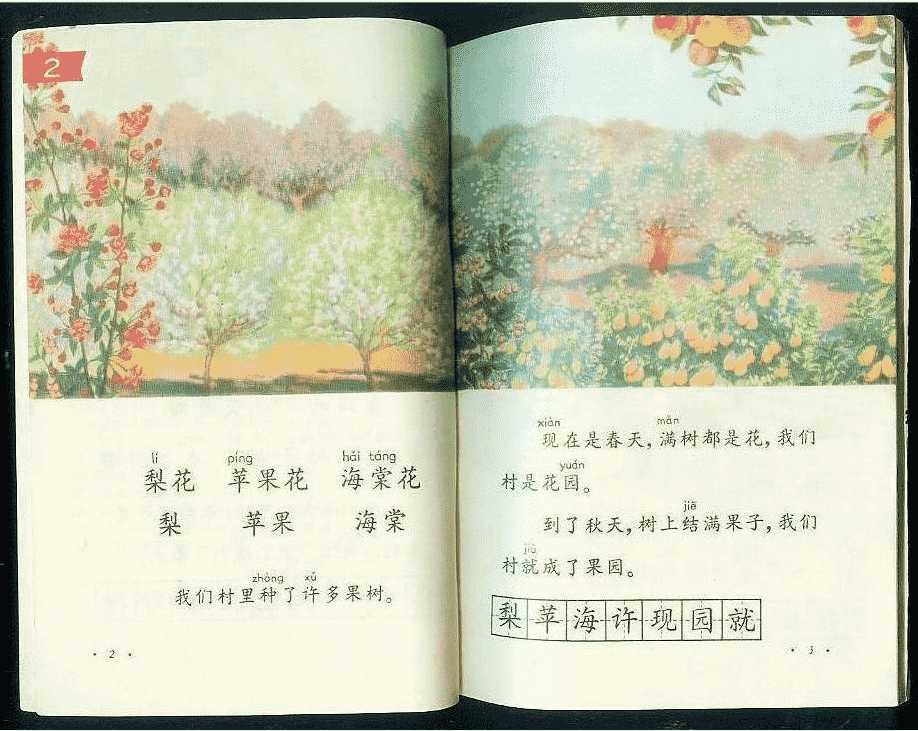 2
lí píng hǎi táng
梨花 苹果花 海棠花
梨 苹果 海棠
zhòng xǔ
我们村里种了许多果树。
· 2 ·
xiàn mǎn
现在是春天，满树都是花，我们
yuán
村是花园。
jiē
到了秋天，树上结满果子，我们
jiù
村就成了果园。
梨苹海许现园就
· 3 ·